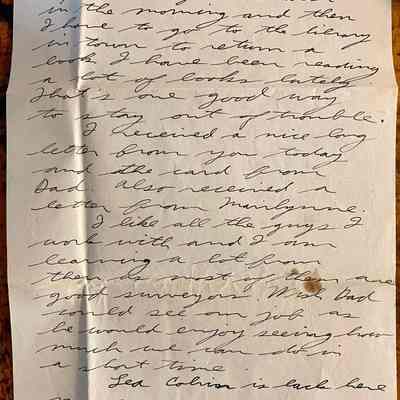 in the morning and then
I have to go to the library
in town to return a
book I have been reading
a lot of books lately.
That's one good way
to stay out of trouble.
I received a nice long
letter from you today
and the card from
Dad. Also received a
letter from Marilynne.
I like all the guys I
work with and I am
learning a lot from
them as most of them are
good surveyors. Wish Dad
could see our job as
he would enjoy seeing how
much we can do in
a short time.
is back here